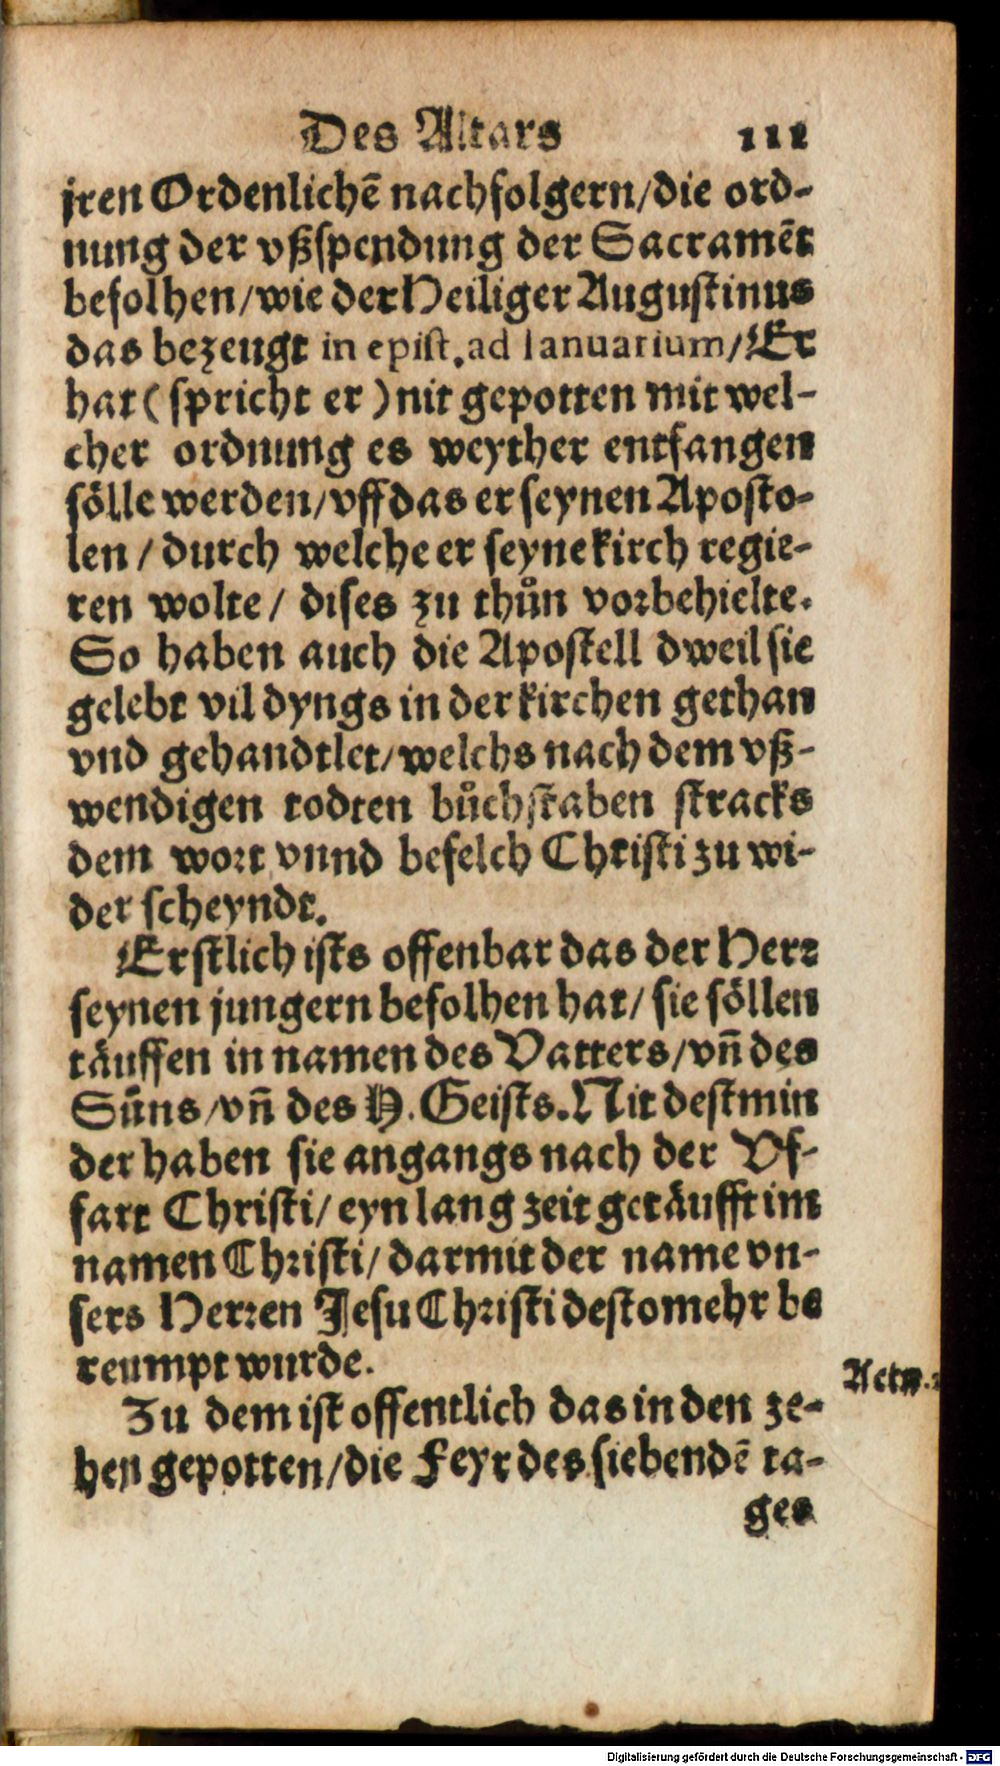 Des Altars 111
jren Ordenlichē nachfolgern/die ord-
nung der vßspendung der Sacramēt
befolhen/wie der Heiliger Augustinus
das bezeugt in epist. ad Ianuarium/Er
hat (spricht er) nit gepotten mit wel-
cher ordnung es weyther entfangen
sölle werden/vff das er seynen Aposto-
len/durch welche er seyne kirch regie-
ren wolte/ dises zu thůn vorbehielte.
So haben auch die Apostell dweil sie
gelebt vil dyngs in der kirchen gethan
vnd gehandtlet/welchs nach dem vß-
wendigen todten bůchstaben stracks
dem wort vnnd befelch Christi zu wi-
der scheyndt.
Erstlich ists offenbar das der Herr
seynen jungern befolhen hat/ sie söllen
täuffen in namen des Vatters/vñ des
Suns/vñ des H. Geists. Nit destmin
der haben sie angangs nach der Vf-
fart Christi/ eyn lang zeit getäufft im
namen Christi/ darmit der name vn-
sers Herren Jesu Christi desto mehr be
reumpt wurde.
Actu. 2
Zu dem ist offentlich das in den ze-
hen gepotten/die Feyr des siebendē ta-
ges
Digitalisierung gefördert durch die Deutsche Forschungsgemeinschaft - DFG